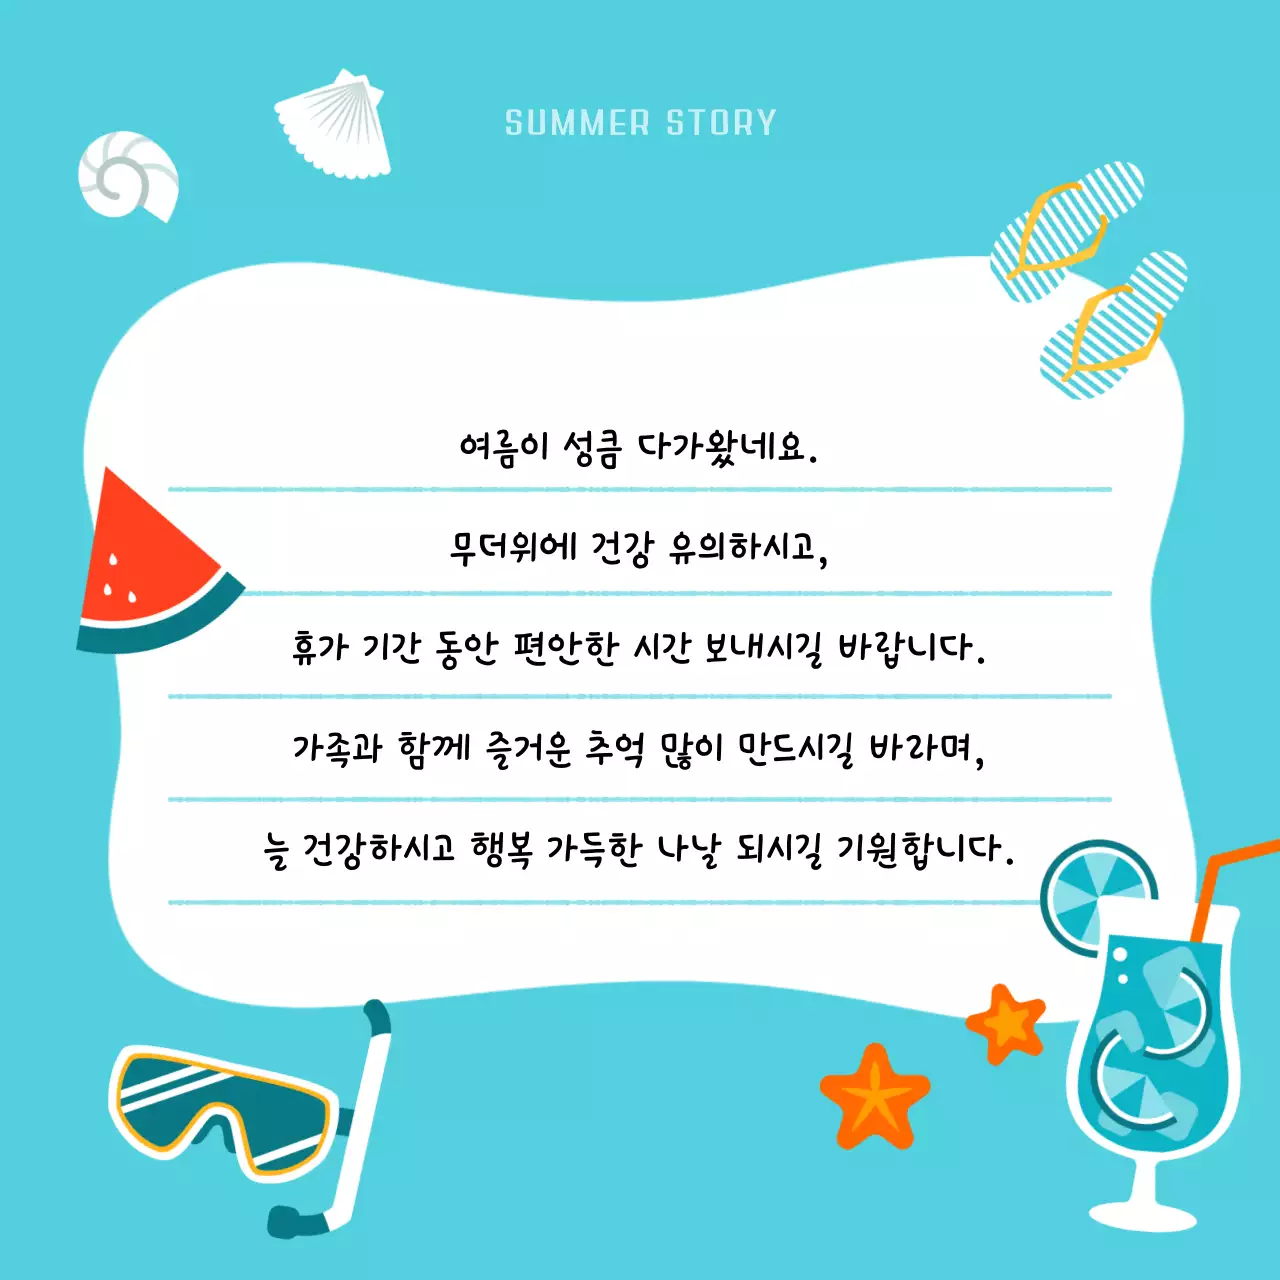 SUMMER STORY
여름이 성큼 다가왔네요.
무더위에 건강 유의하시고,
휴가 기간 동안 편안한 시간 보내시길 바랍니다.
가족과 함께 즐거운 추억 많이 만드시길 바라며,
늘 건강하시고 행복 가득한 나날 되시길 기원합니다.